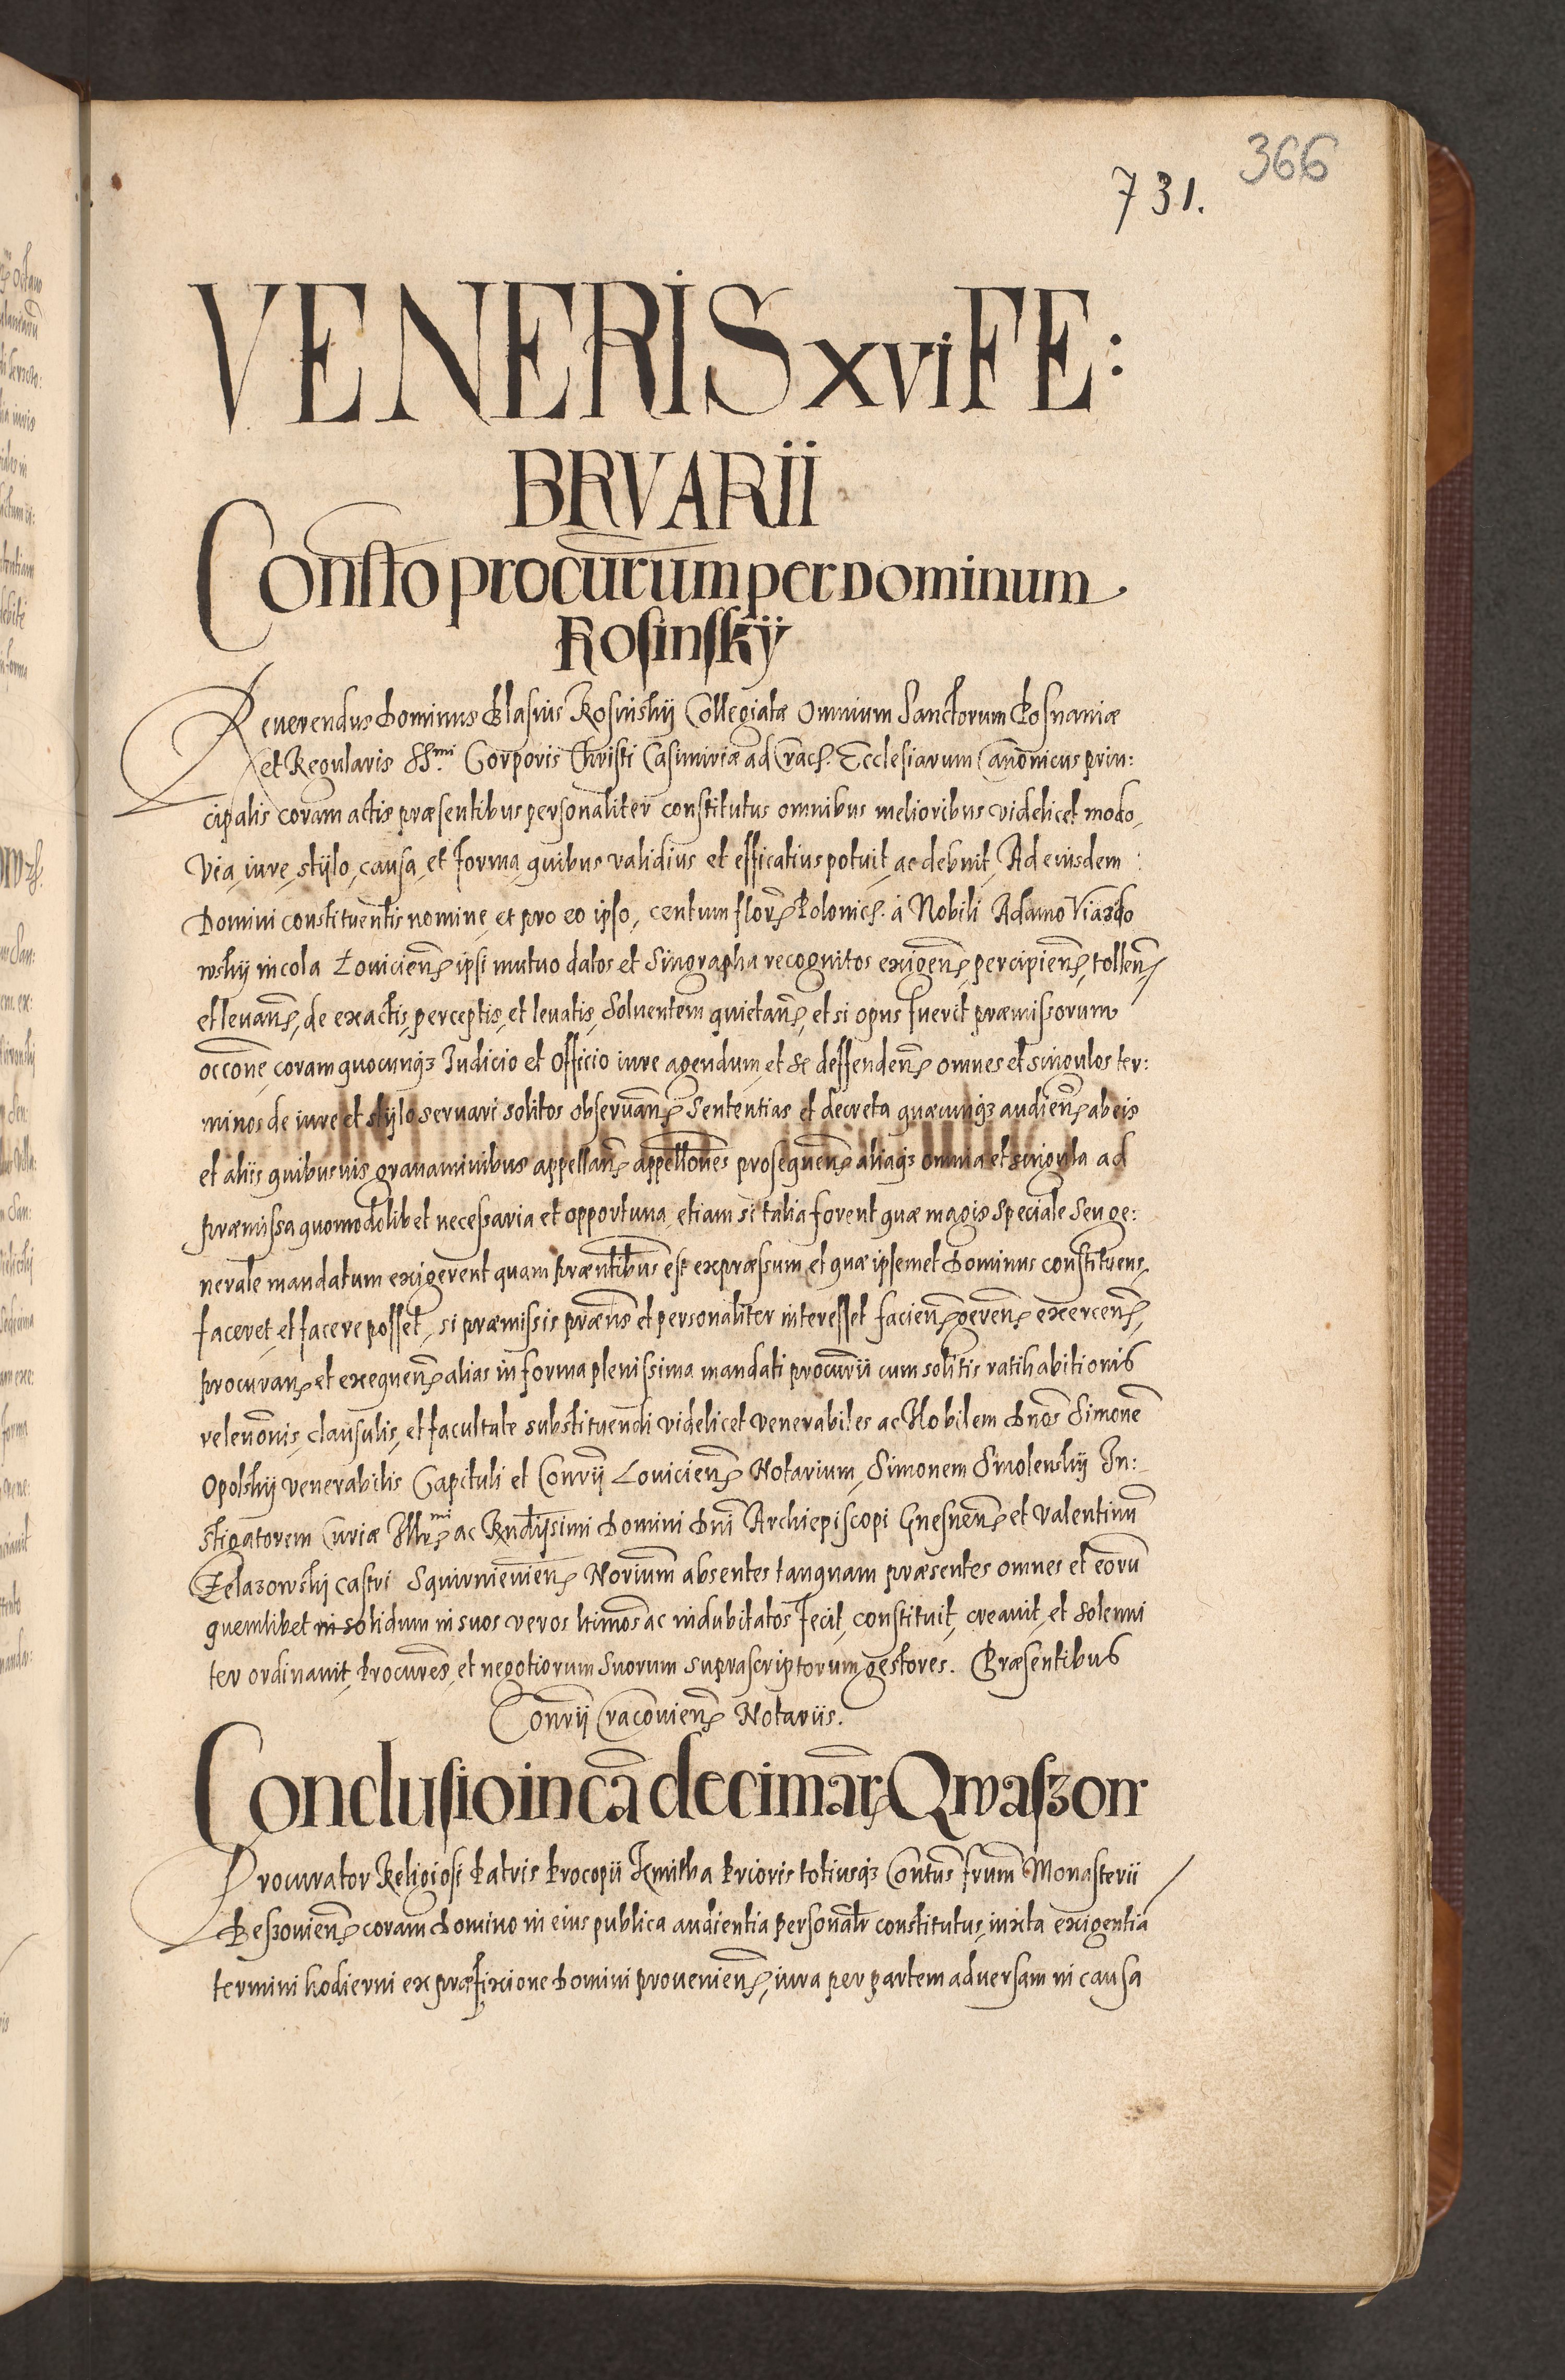 366
731.
VENERIS xvi FE:
BRVARII
Constto procurum per Dominum
Rosinskÿ
Reuerendus Dominus Blasius Rosinskÿ Collegiatæ Omnium Sanctorum Posnaniæ
et Regularis SS.mi Corporis Christi Casimiriæ ad Crac. Ecclesiarum Canonicus prin:
cipalis coram actis præsentibus personaliter constitutus omnibus melioribus videlicet modo,
via, iure, stÿlo, causa, et forma, quibus validius et efficatius potuit, ac debuit, Ad eiusdem
Domini constituentis nomine, et pro eo ipso, centum flor. Polonic. à Nobili Adamo
wskÿ incola Louicien. ipsi mutuo datos et Singrapha recognitos exigen. percipien. tollen.
et leuan. de exactis, perceptis, et leuatis, Soluentem quietan. et si opus fuerit præmissorum
occone, coram quocunq; Iudicio et Officio iure agendum, et se deffenden. omnes et singulos ter:
minos de iure et stÿlo seruari solitos obseruan. Sententias et decreta quæcunq; audien. ab eis
et aliis quibusuis grauaminibus appellan. appellones prosequen. aliaq; omnia et singula ad
præmissa quomodolibet necessaria et opportuna, etiam si talia forent quæ magis speciale seu ge:
nerale mandatum exigerent quam præntibus est expræssum, et quæ ipsemet Dominus constituens,
faceret, et facere posset, si præmissis præns et personaliter interesset facien. geren. exercen.
procuran. et exequen. alias in forma plenissima mandati procurii cum solitis ratihabitionis
releuonis, clausulis, et facultate substituendi videlicet venerabiles ac Nobilem Dnos Simone
Opolskÿ venerabilis Capituli et Conrii Louicien. Notarium, Simonem Smolenskÿ In:
stigatorem Curiæ Illr.mi ac Rndissimi Domini Dni Archiepiscopi Gnesnen. et Valentinu
Zelazowskÿ castri Squirnieuien. Norium absentes tanquam præsentes omnes et eoru
quemlibet in solidum in suos veros ltimos ac indubitatos fecit, constituit, creauit, et solenni
ter ordinauit, Procures, et negotiorum Suorum suprascriptorum gestores. Præsentibus
Conrii Cracouien. Notariis.
Conclusio in ca decimar. Qwaszon
Procurator Religiosi Patris Procopii Kmitha Prioris totiusq; Contus frum Monasterii
Beszouien. coram Domino in eius publica audientia personalr constitutus, iuxta exigentia
termini hodierni ex præfixione Domini prouenien. iura per partem aduersam in causa